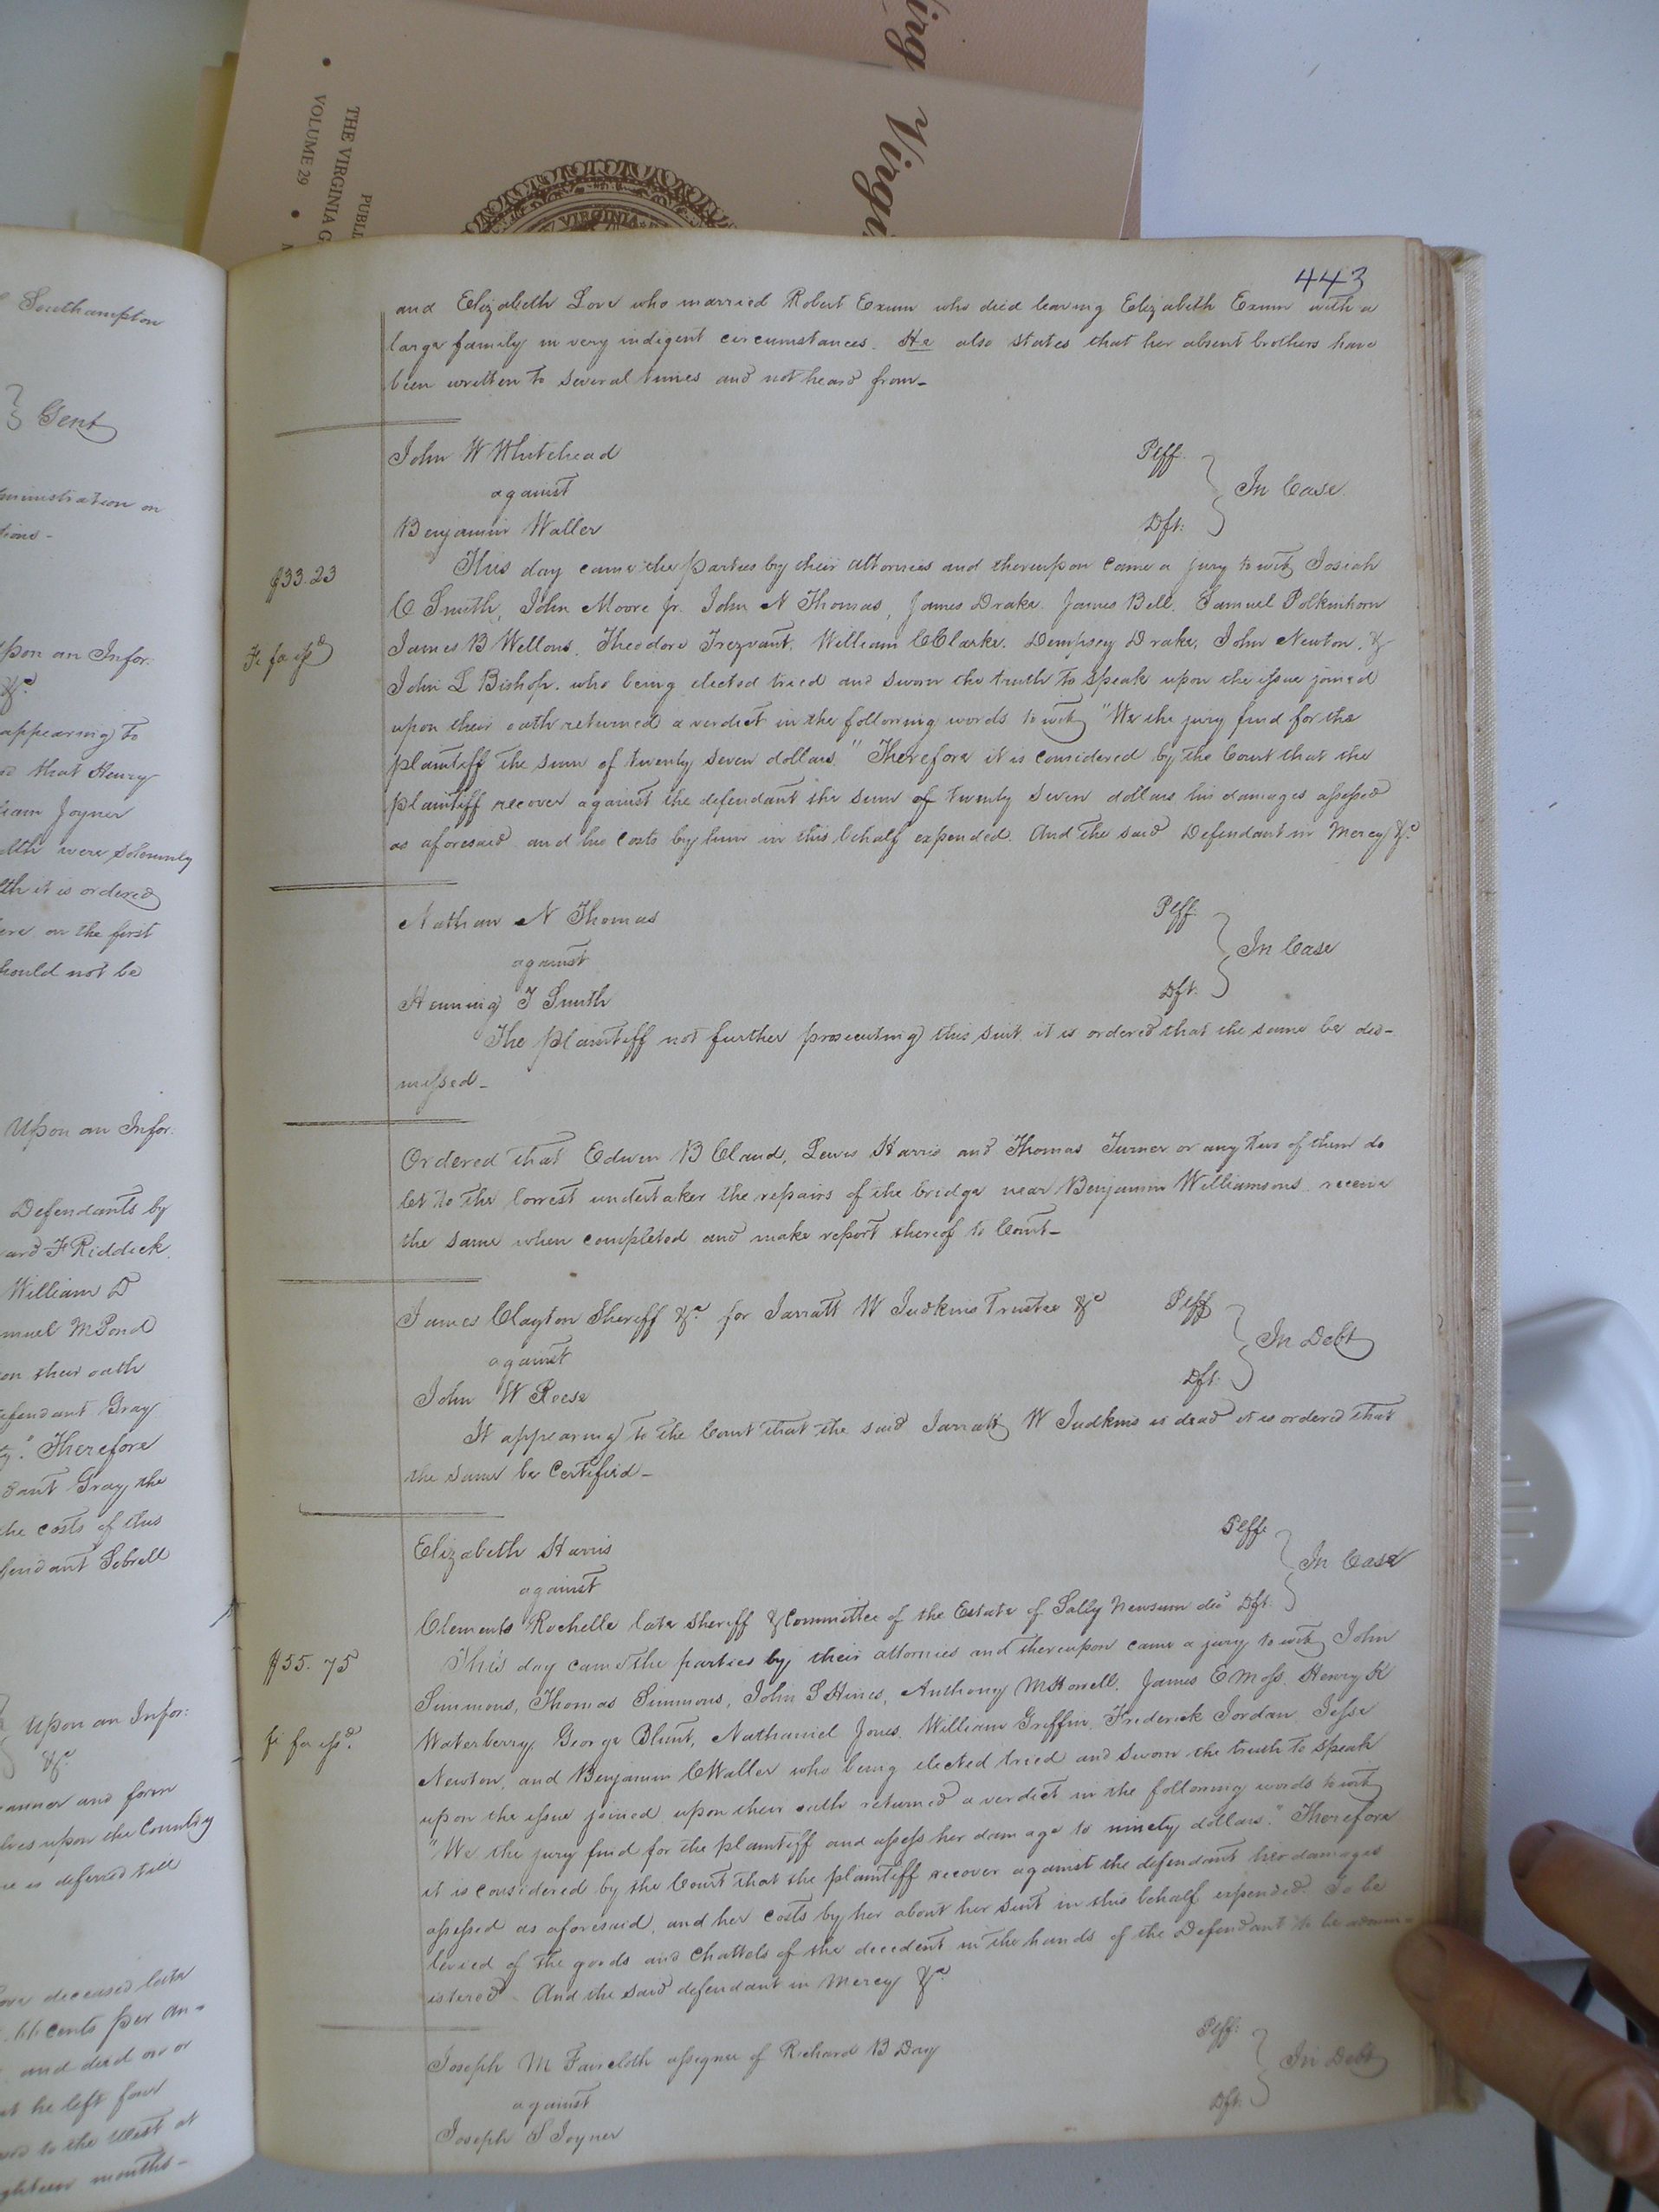 Virgi
THE VIRGINIA G
VOLUME 29
VIRGINIA
443
and Elizabeth Love who married Robert Exum who died leaving Elizabeth Exum with a
large family in very indigent circumstances. He also states that her absent brothers have
been written to several times and not heard from-
John W Whitehead Plff.
against In Case
Benjamin Waller Dft.
$33.23
This day came the parties by their attornies and thereupon came a jury to wit, Josiah
C Smith, John Moore Jr. John N Thomas, James Drake. James Bell. Samuel Polkinhorn
Fi fa issd
James B Wellons. Theodore Trezvant. William C Clarke. Demhsey Drake, John Newton. &
John L Bishop. who being elected tried and sworn the truth to speak upon the issue joined
upon their oath returned a verdict in the following words to wit, "We the jury find for the
plaintiff the sum of twenty seven dollars." Therefore it is considered by the Court that the
plaintiff recover against the defendant the sum of twenty seven dollars his damages assessed
as aforesaid and his costs by him in this behalf expended. And the said Defendant in Mercy &c
Nathan N Thomas Plff.
against In Case
Henning T Smith Dft.
The plaintiff not further prosecuting this suit it is ordered that the same be dis-
missed-
Ordered that Edwin B Claud, Lewis Harris and Thomas Turner or any two of them do
let to the lowest undertaker the repairs of the bridge near Benjamin Williamsons receive
the same when completed and make report thereof to Court-
James Clayton Sheriff &c for Jarratt W Judkins Trustee &c Plff
against In Debt
John W Reese Dft.
It appearing to the Court that the said Jarratt W Judkins is dead it is ordered that
the same be Certified-
Elizabeth Harris Plff.
against In Case
Clements Rochelle late Sheriff & Committee of the Estate of Sally Newsum decd Dft.
$55.75
This day came the parties by their attornies and thereupon came a jury to wit, John
Simmons, Thomas Simmons, John S Hines, Anthony M Howell. James E Moss. Henry K
fi fa issd.
Waterberry. George Blunt, Nathaniel Jones. William Griffin. Frederick Jordan. Jesse
Newton, and Benjamin C Waller who being elected tried and sworn the truth to speak
upon the issue joined upon their oath returned a verdict in the following words to wit
"We the jury find for the plaintiff and assess her damage to ninety dollars." Therefore
it is considered by the Court that the plaintiff recover against the defendant her damages
assessed as aforesaid, and her costs by her about her suit in this behalf expended. To be
levied of the goods and Chattels of the decedent in the hands of the Defendant to be admin-
istered. And the said defendant in Mercy &c
Joseph M Faircloth assignee of Richard B Day Plff.
against In Debt
Joseph S Joyner Dft.
Southampton
Gent
ministration on
tions-
upon an Infor.
&c
appearing to
that Henry
liam Joyner
were Solemnly
it is ordered
on the first
should not be
Upon an Infor.
Defendants by
F Riddick.
William D
muel M Pond
on their oath
efendant Gray
Therefore
dant Gray the
the costs of this
fendant Sebrell
Upon an Infor:
&c.
anner and form
lves upon the Country
is deferred till
deceased late
66 cents per an-
and died on or
he left four
to the West at
ghteen months-